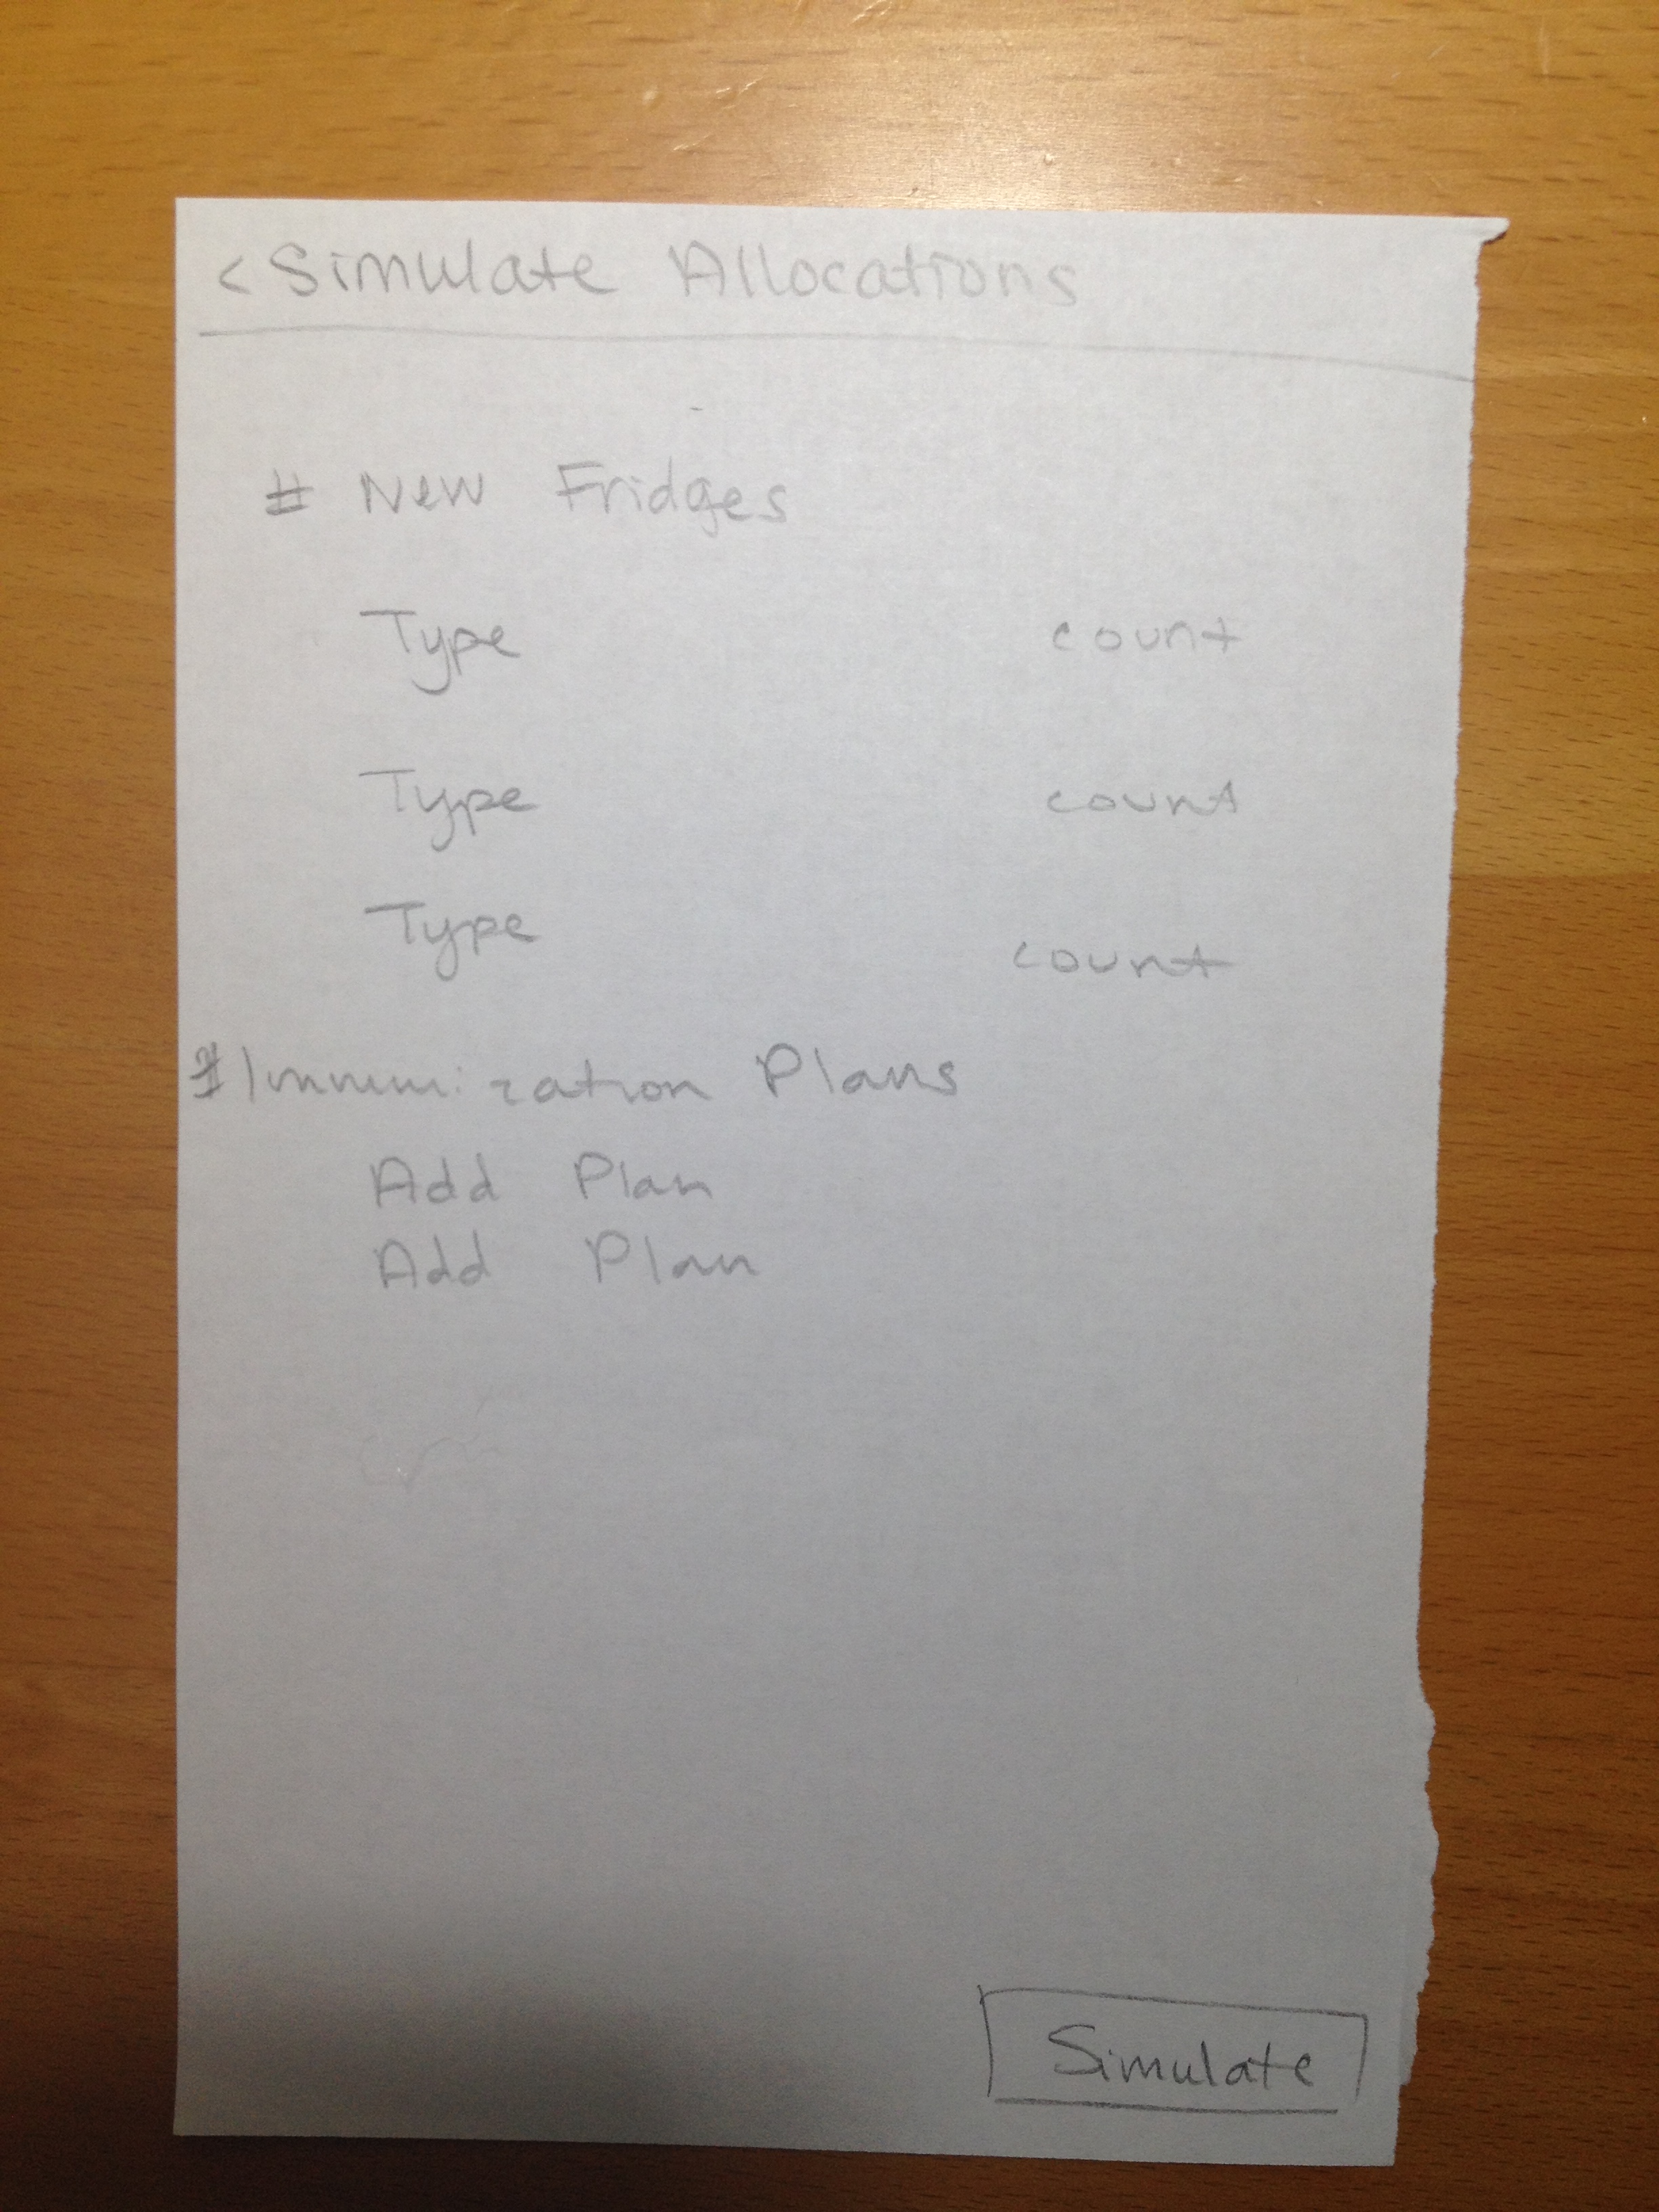 < Simulate Allocations
# New Fridges
Type count
Type count
Type count
# Immunization Plans
Add Plan
Add Plan
Simulate